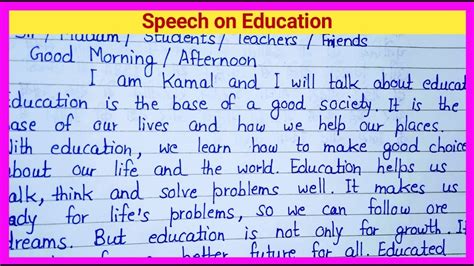 Speech on Education
Sir / Madam / Students / Teachers / Friends
Good Morning / Afternoon
I am Kamal and I will talk about educat
Education is the base of a good society. It is the
base of our lives and how we help our places.
With education, we learn how to make good choice
about our life and the world. Education helps us
talk, think and solve problems well. It makes us
ready for life's problems, so we can follow ore
dreams. But education is not only for growth. It
better future for all. Educated